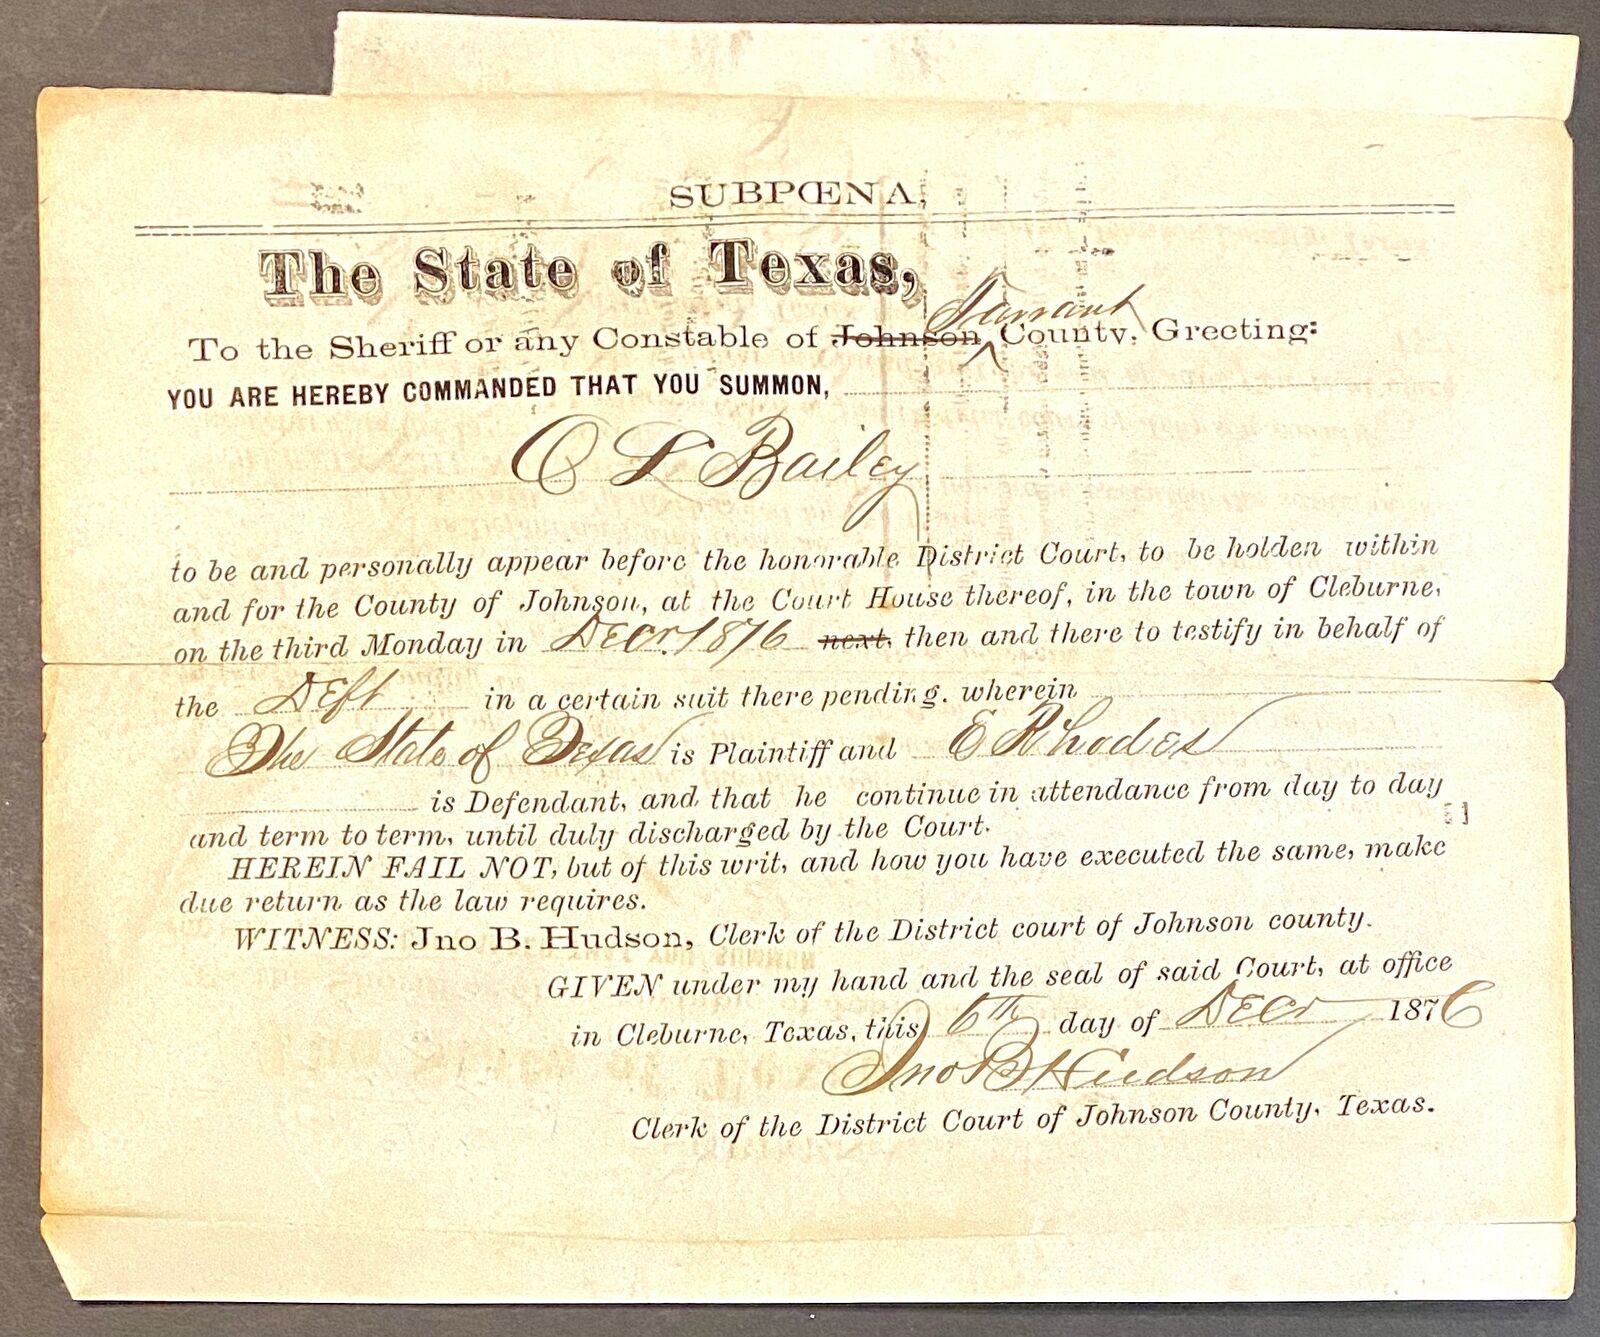 SUBPŒNA,
The State of Texas,
Tarrant
To the Sheriff or any Constable of Johnson County, Greeting:
YOU ARE HEREBY COMMANDED THAT YOU SUMMON,
C L Bailey
to be and personally appear before the honorable District Court, to be holden within
and for the County of Johnson, at the Court House thereof, in the town of Cleburne,
on the third Monday in Decr. 1876 next, then and there to testify in behalf of
the Deft in a certain suit there pending, wherein
The State of Texas is Plaintiff and E Rhodes
is Defendant, and that he continue in attendance from day to day
and term to term, until duly discharged by the Court.
HEREIN FAIL NOT, but of this writ, and how you have executed the same, make
due return as the law requires.
WITNESS: Jno B. Hudson, Clerk of the District court of Johnson county.
GIVEN under my hand and the seal of said Court, at office
in Cleburne, Texas, this 6th day of Decr 1876
Jno B Hudson
Clerk of the District Court of Johnson County, Texas.